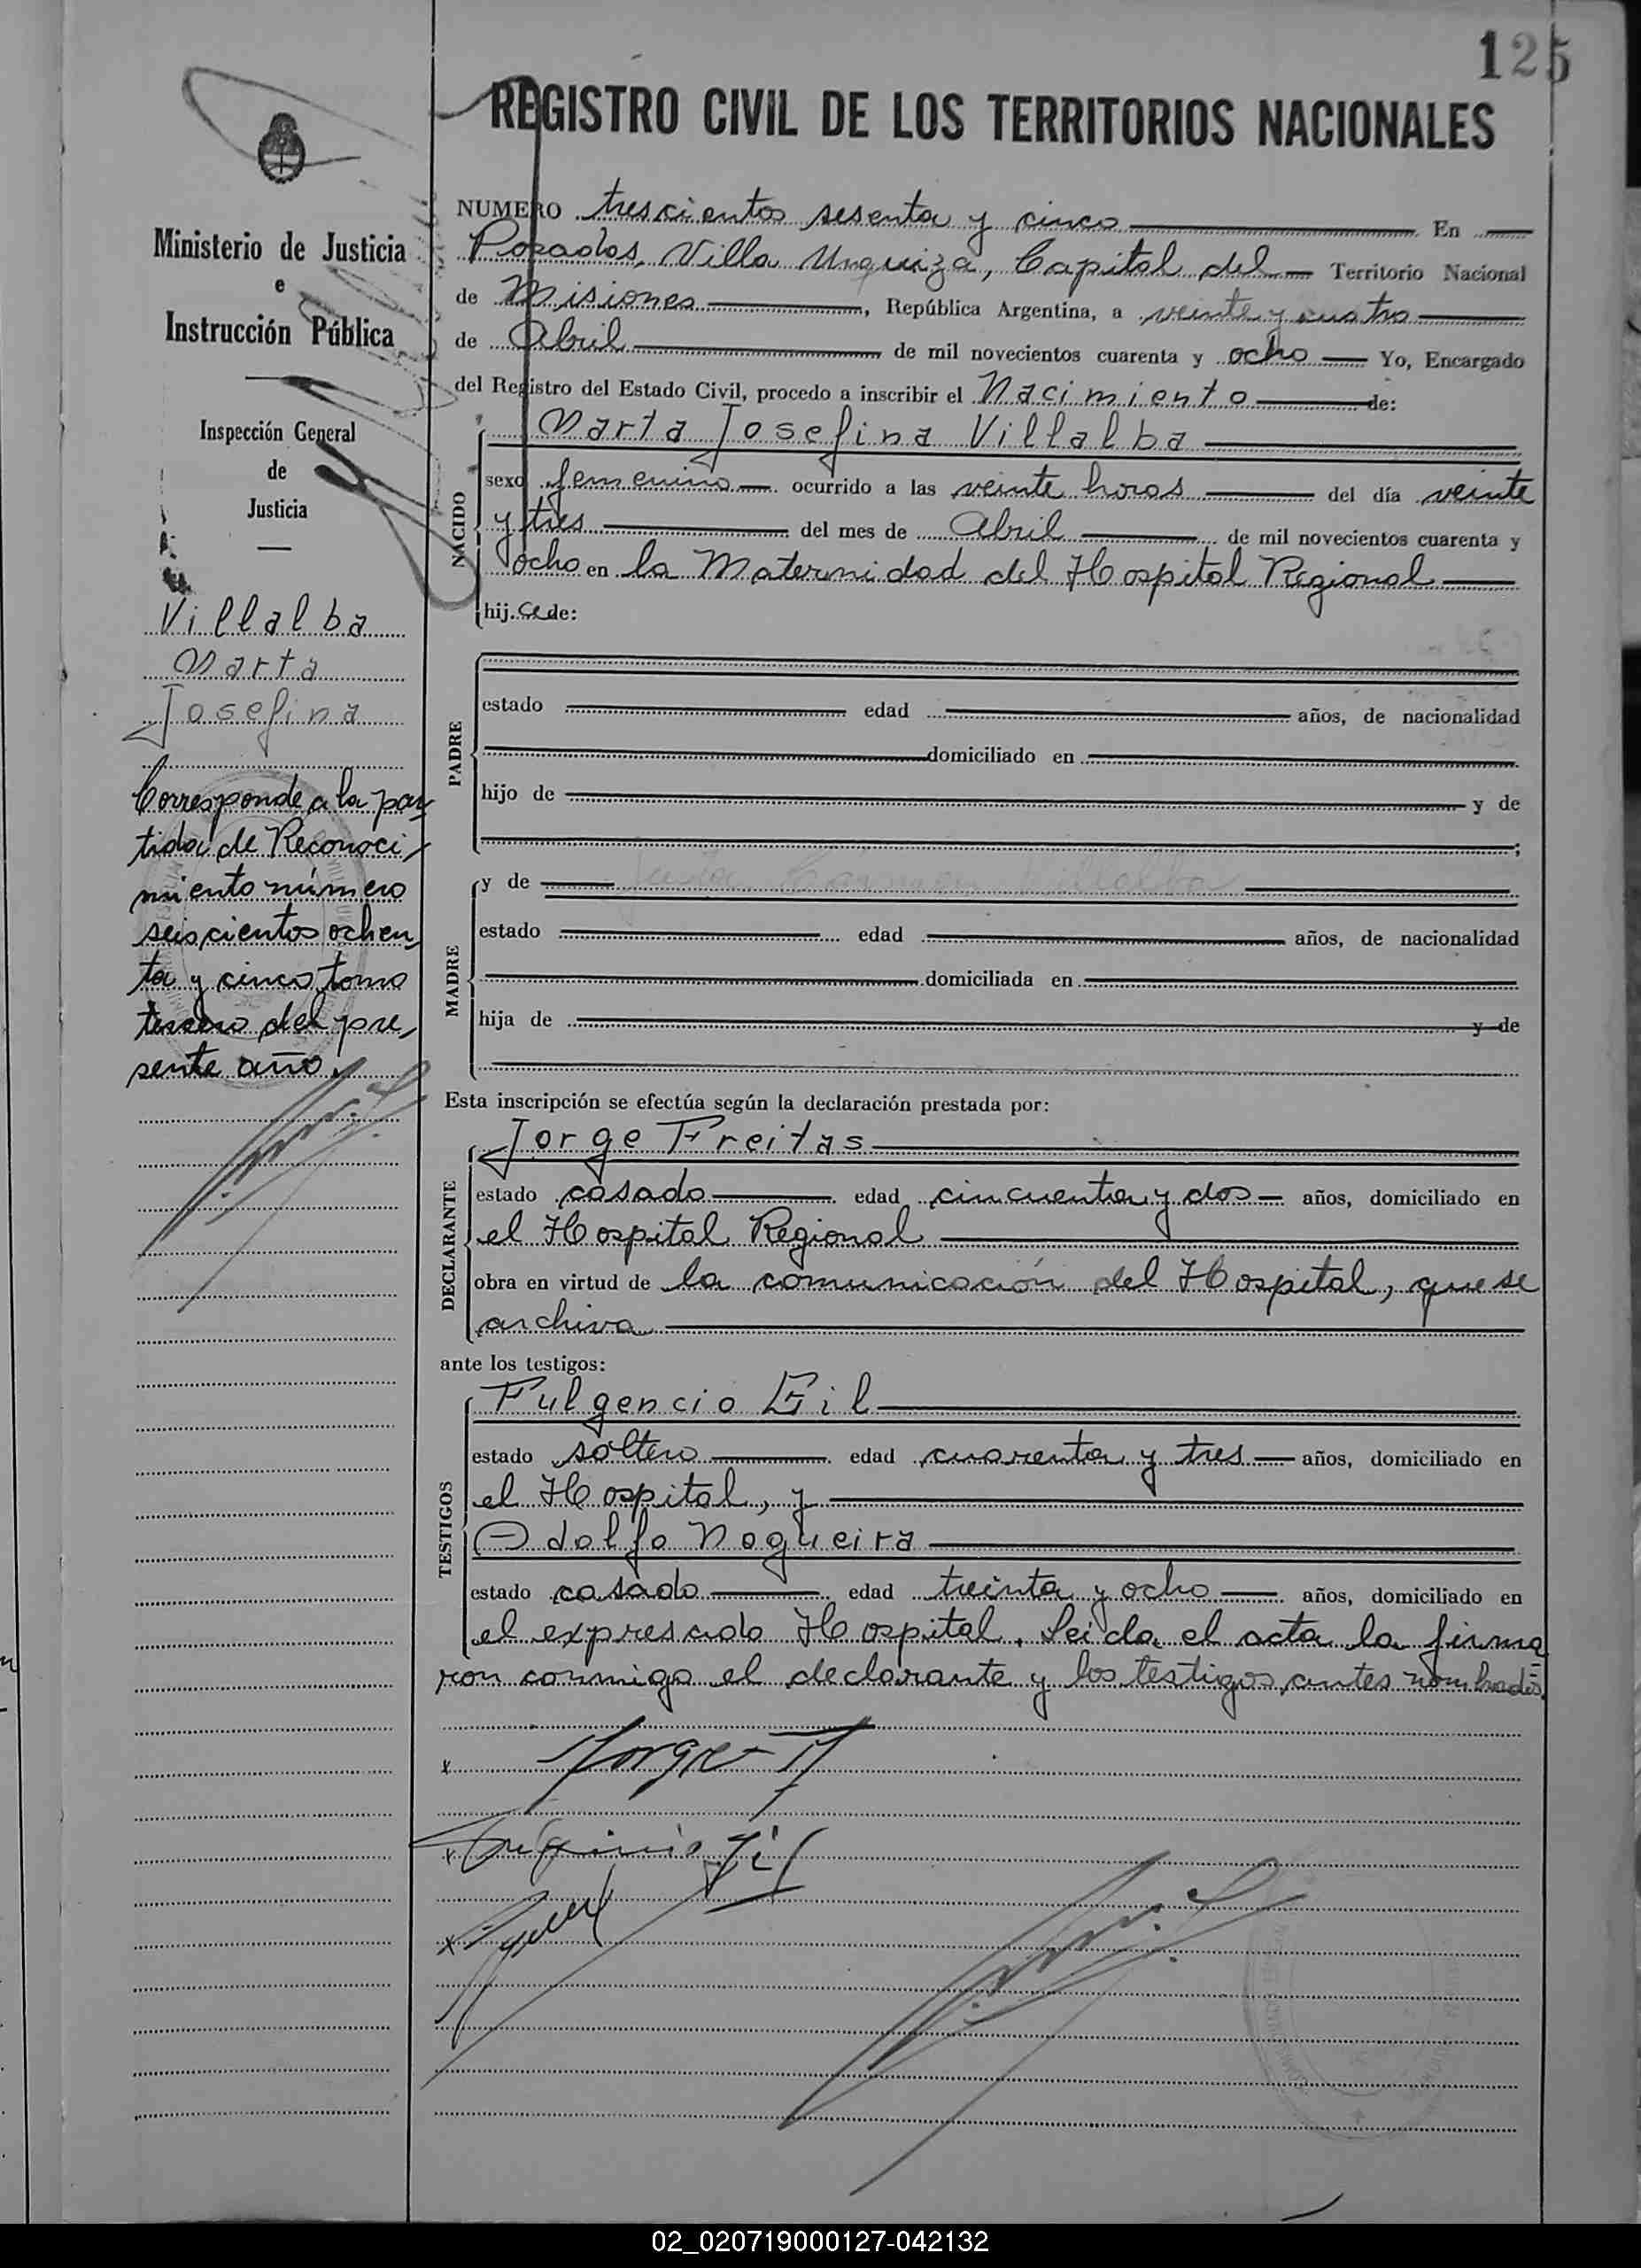 125
REGISTRO CIVIL DE LOS TERRITORIOS NACIONALES
Ministerio de Justicia
e
Instrucción Pública
Inspección General
de
Justicia
Villalba
Marta
Josefina
Corresponde a la par
tida de Reconoci
miento número
seiscientos ochen
ta y cinco tomo
tercero del pre
sente año.
NUMERO trescientos sesenta y cinco En
Posadas, Villa Urquiza, Capital del Territorio Nacional
de Misiones, República Argentina, a veinte y cuatro
de Abril de mil novecientos cuarenta y ocho Yo, Encargado
del Registro del Estado Civil, procedo a inscribir el Nacimiento de:
NACIDO
Marta Josefina Villalba
sexo femenino ocurrido a las veinte horas del día veinte
y tres del mes de Abril de mil novecientos cuarenta y
ocho en la Maternidad del Hospital Regional
hija de:
PADRE
estado edad años, de nacionalidad
domiciliado en
hijo de y de
;
MADRE
y de Carmen Villalba
estado edad años, de nacionalidad
domiciliada en
hija de y de
Esta inscripción se efectúa según la declaración prestada por:
DECLARANTE
Jorge Freitas
estado casado edad cincuenta y dos años, domiciliado en
el Hospital Regional
obra en virtud de la comunicación del Hospital, que se
archiva
ante los testigos:
TESTIGOS
Fulgencio Gil
estado soltero edad cuarenta y tres años, domiciliado en
el Hospital, y
Adolfo Nogueira
estado casado edad treinta y ocho años, domiciliado en
el expresado Hospital. Leida el acta la firma
ron conmigo el declarante y los testigos antes nombrados.
02_020719000127-042132